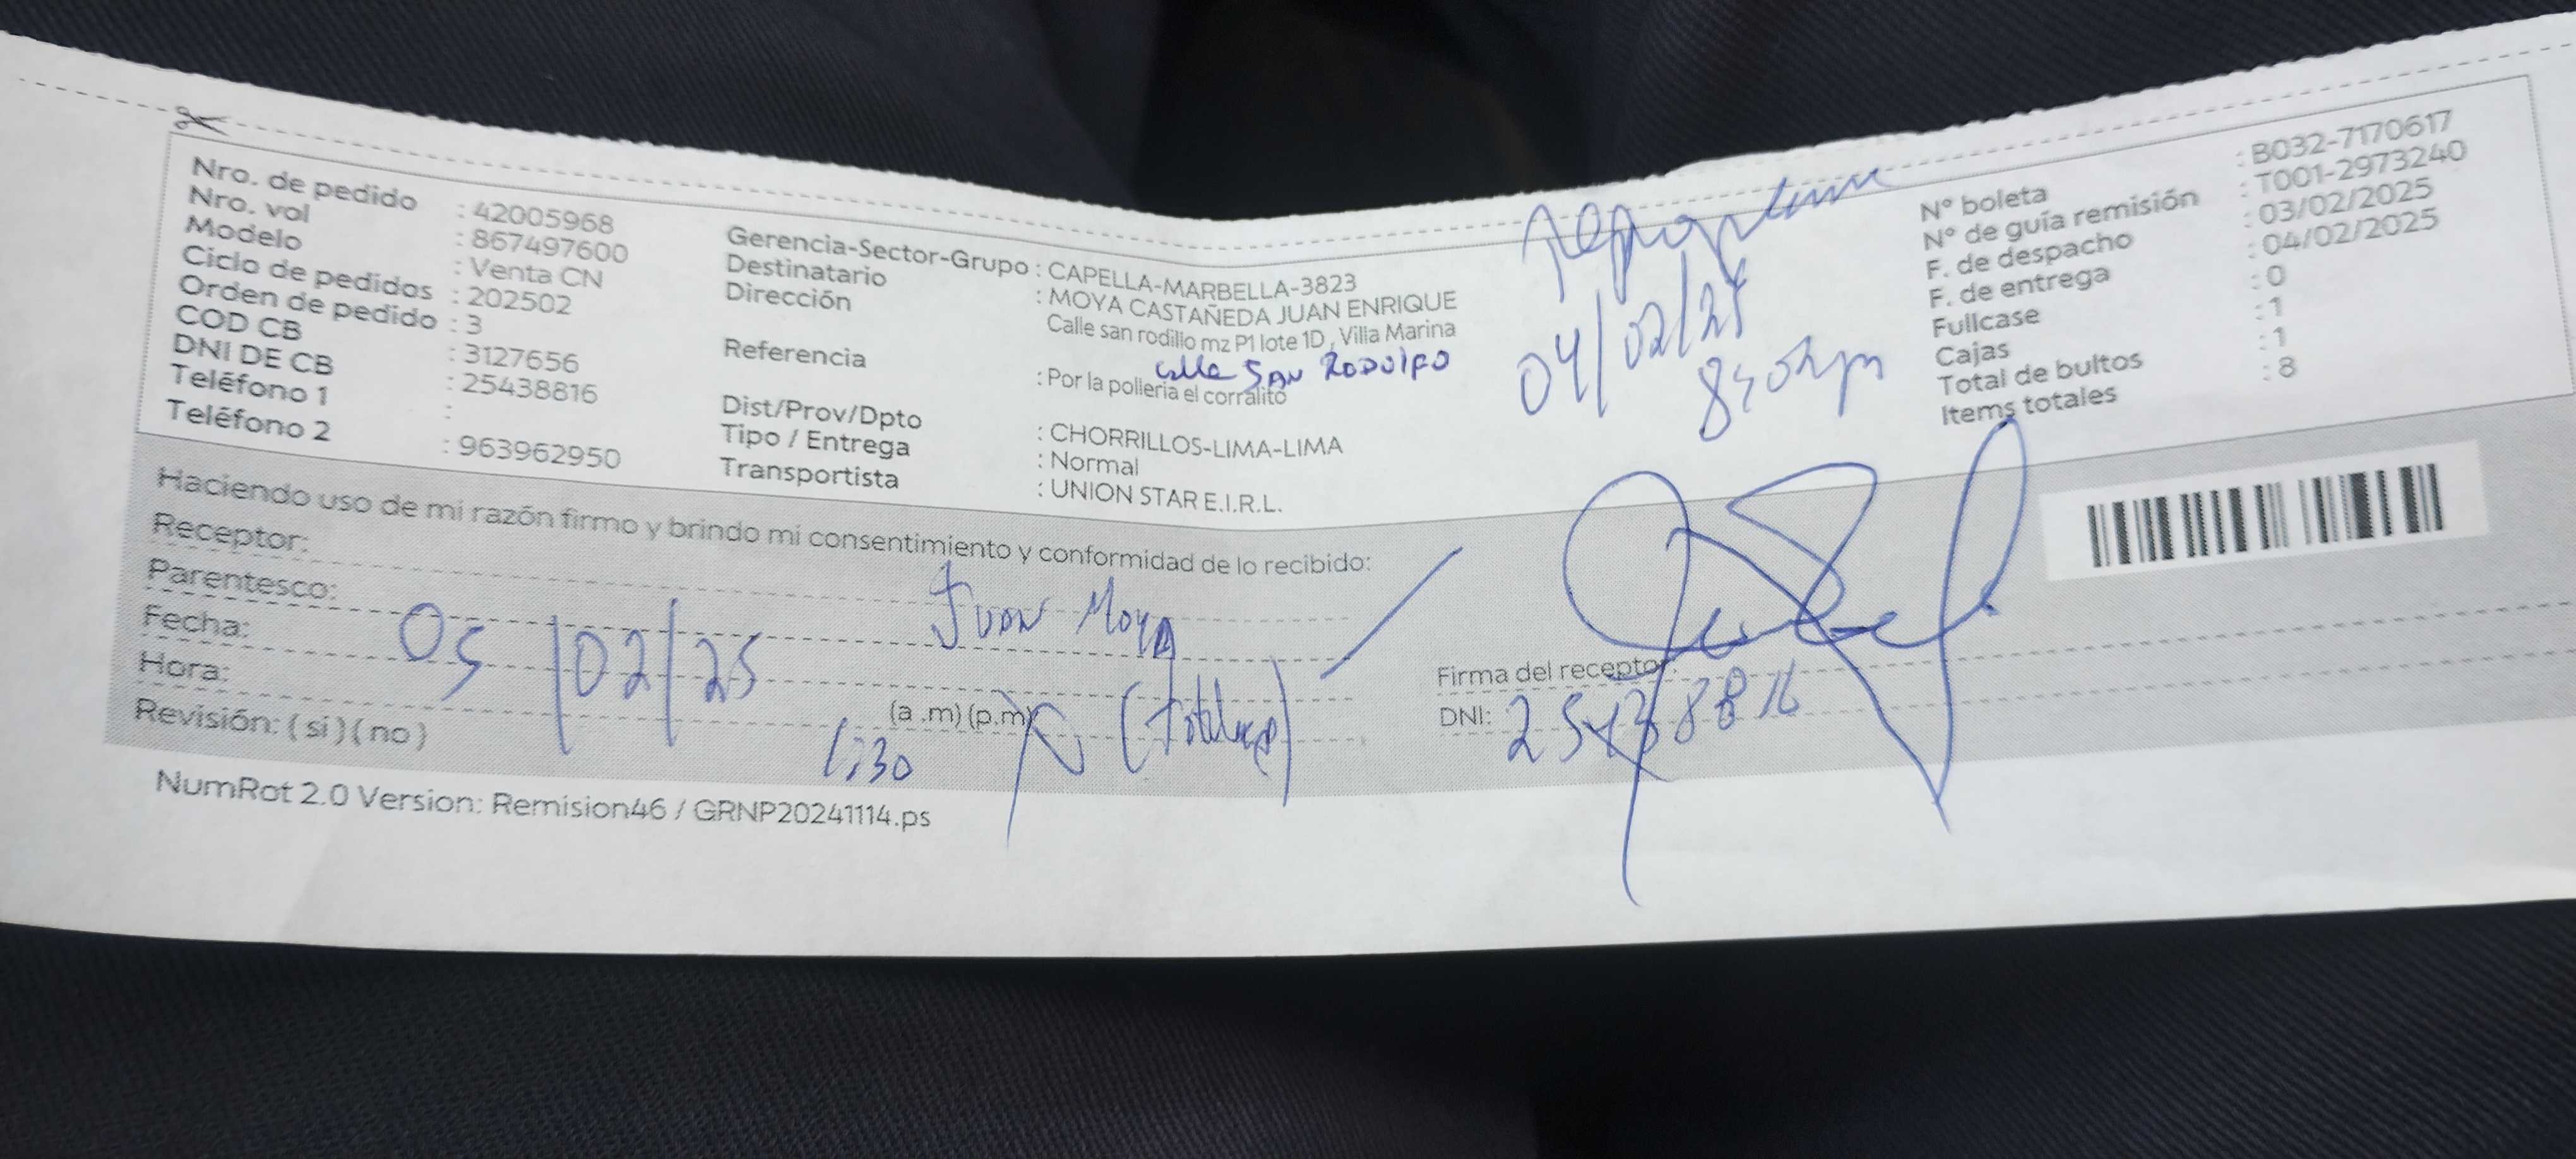 Nro. de pedido : 42005968
Nro. vol : 867497600
Modelo : Venta CN
Ciclo de pedidos : 202502
Orden de pedido : 3
COD CB : 3127656
DNI DE CB : 25438816
Teléfono 1 :
Teléfono 2 : 963962950
Gerencia-Sector-Grupo : CAPELLA-MARBELLA-3823
Destinatario : MOYA CASTAÑEDA JUAN ENRIQUE
Dirección : Calle san rodillo mz P1 lote 1D, Villa Marina
calle SAN RODOLFO
Referencia : Por la polleria el corralito
Dist/Prov/Dpto : CHORRILLOS-LIMA-LIMA
Tipo / Entrega : Normal
Transportista : UNION STAR E.I.R.L.
04/02/25
N° boleta : B032-7170617
N° de guía remisión : T001-2973240
F. de despacho : 03/02/2025
F. de entrega : 04/02/2025
Fullcase : 0
Cajas : 1
Total de bultos : 1
Items totales : 8
Haciendo uso de mi razón firmo y brindo mi consentimiento y conformidad de lo recibido:
Receptor: JUAN MOYA
Parentesco:
Fecha: 05/02/25
Hora: 1:30 (a .m) (p.m)
Revisión: ( si ) ( no )
Firma del receptor:
DNI: 25438816
NumRot 2.0 Version: Remision46 / GRNP20241114.ps